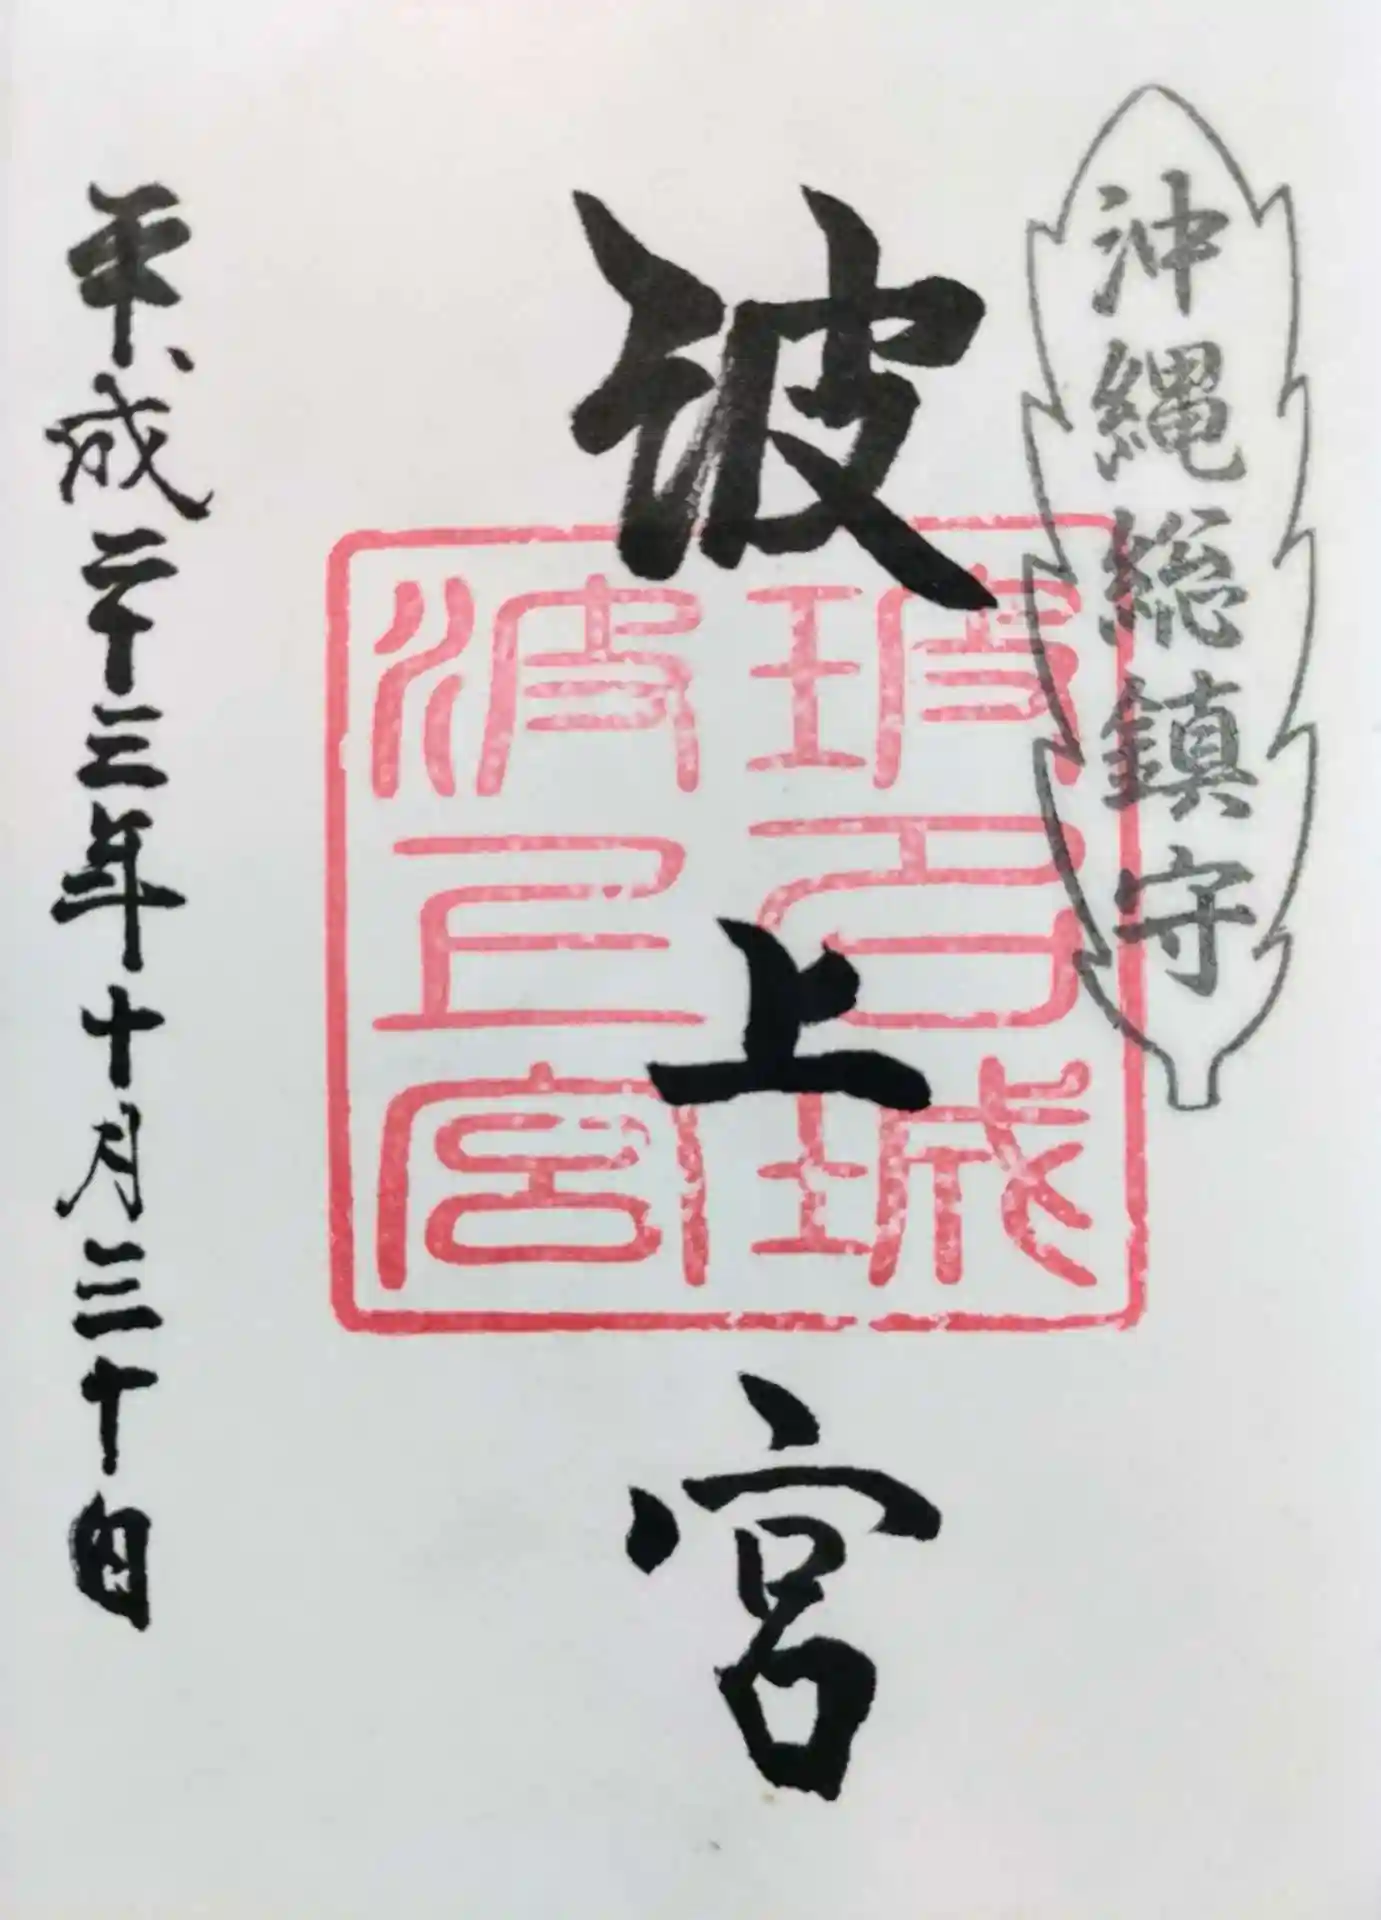 沖縄総鎮守
波上宮
波上宮
平成二十三年十月三十日